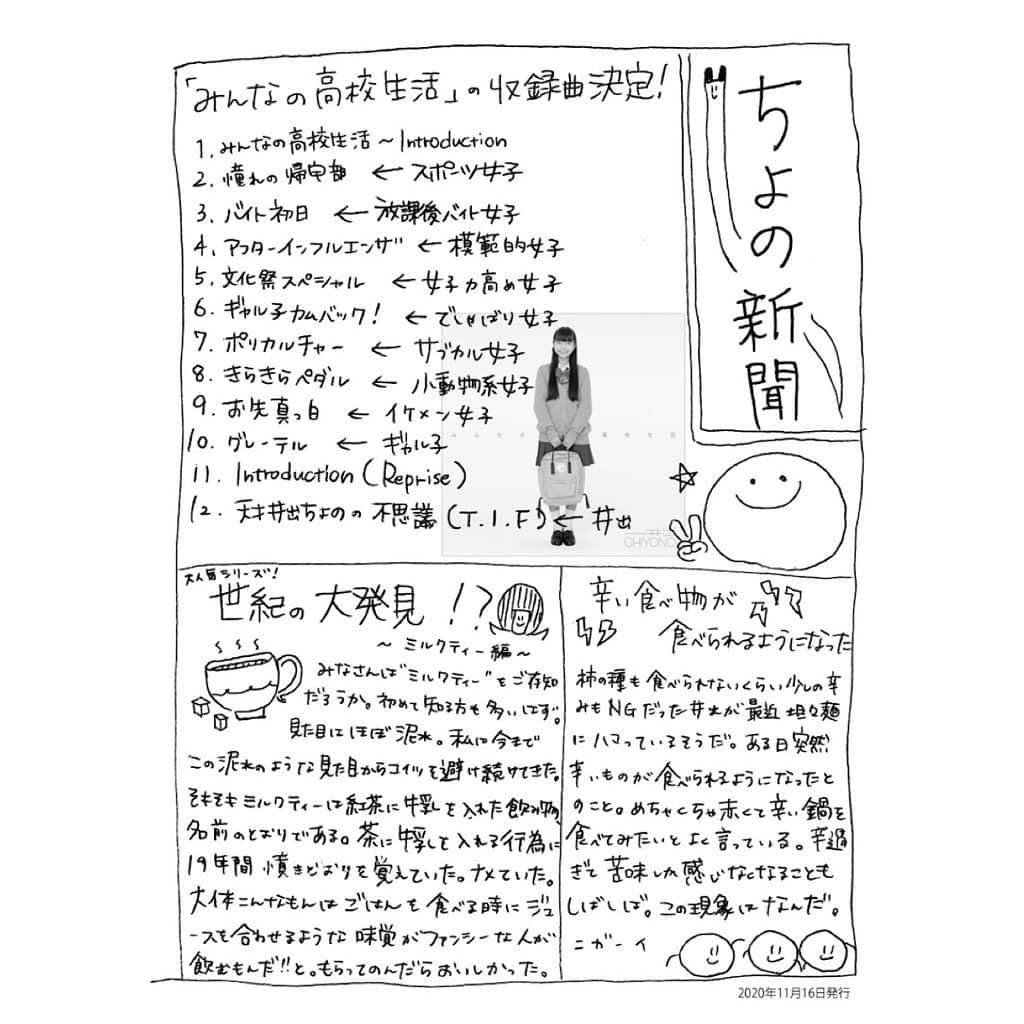 ちょの新聞
「みんなの高校生活」の収録曲決定!
1. みんなの高校生活〜Introduction
2. 憧れの帰宅部 ← スポーツ女子
3. バイト初日 ← 放課後バイト女子
4. アフターインフルエンザ ← 模範的女子
5. 文化祭スペシャル ← 女子力高め女子
6. ギャル子カムバック! ← でしゃばり女子
7. ポリカルチャー ← サブカル女子
8. きらきらペダル ← 小動物系女子
9. お先真っ白 ← イケメン女子
10. グレーテル ← ギャル子
11. Introduction (Reprise)
12. 天才井出ちよのの不思議 (T.I.F) ← 井出
みんなの高校生活
CHIYONO
大人気シリーズ!
世紀の大発見!?
〜ミルクティー編〜
みなさんは"ミルクティー"をご存知
だろうか。初めて知る方も多いはず。
見た目はほぼ泥水。私は今まで
この泥水のような見た目からコイツを避け続けてきた。
そもそもミルクティーは紅茶に牛乳を入れた飲み物。
名前のとおりである。茶に牛乳を入れる行為に
19年間憤きどおりを覚えていた。ナメていた。
大体こんなもんはごはんを食べる時にジュ
ースも合わせるような味覚がファンシーな人が
飲むもんだ!!と。もらってのんだらおいしかった。
辛い食べ物が
食べられるようになった
柿の種も食べられないくらい少しの辛
みもNGだった井出が最近坦々麺
にハマっているそうだ。ある日突然
辛いものが食べられるようになったと
のこと。めちゃくちゃ赤くて辛い鍋を
食べてみたいとよく言っている。辛過
ぎて苦味しか感じなくなることも
しばしば。この現象はなんだ。
ニガーイ
2020年11月16日発行